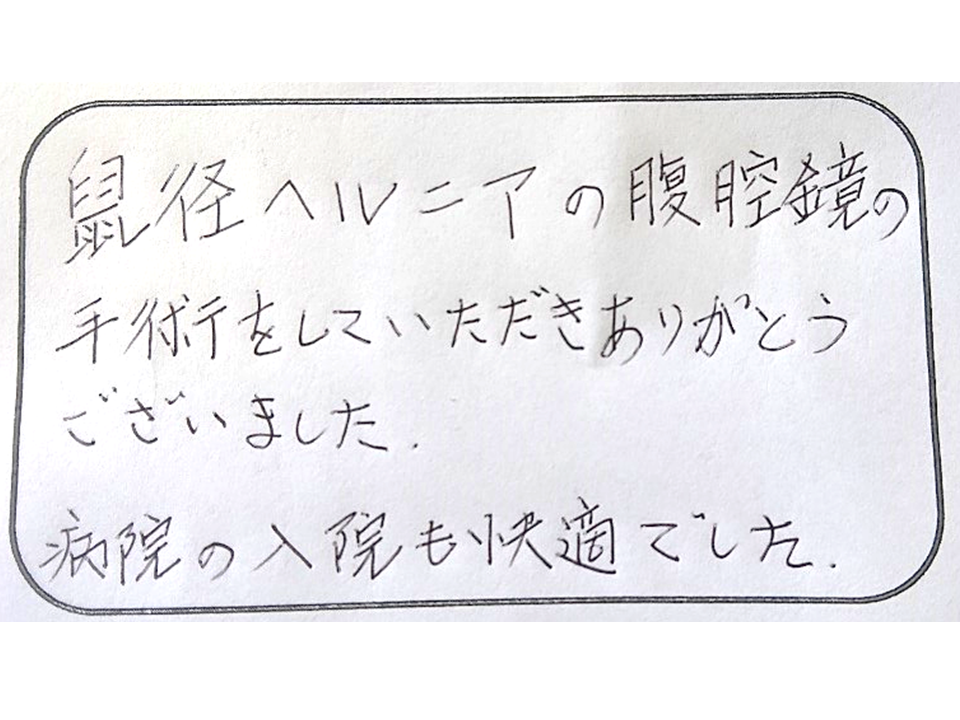 鼠径ヘルニアの腹腔鏡の
手術をしていただきありがとう
ございました.
病院の入院も快適でした.